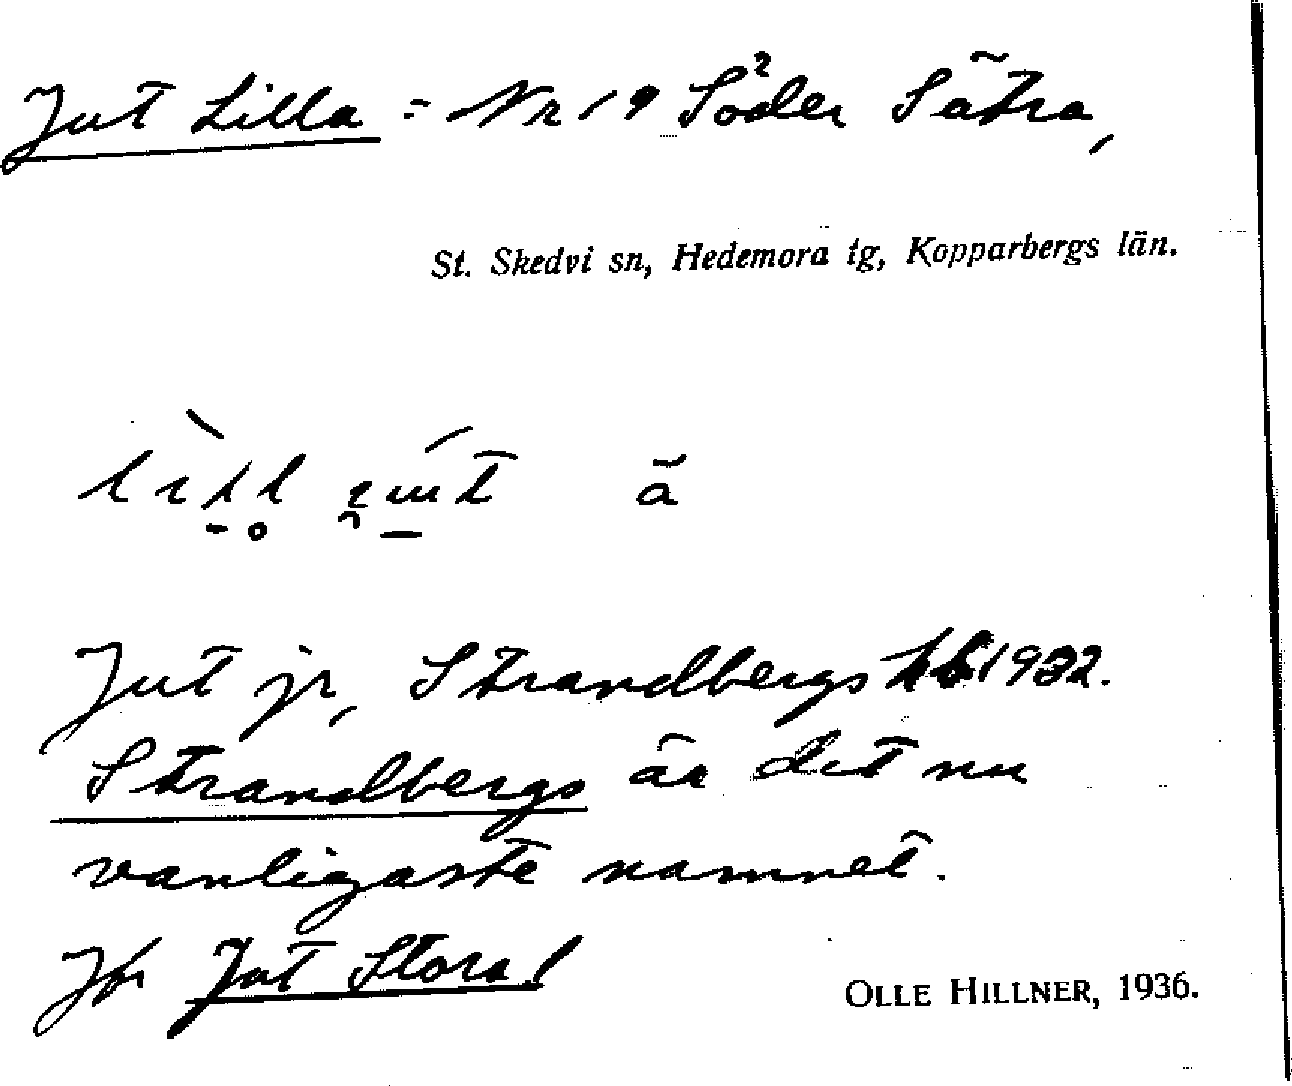 Jut Lilla = Nr 19 Söder Sätra,
St. Skedvi sn, Hedemora tg, Kopparbergs län.
ă
Jut jr, Strandbergs 1932.
Strandbergs är det nu
vanligaste namnet.
Jfr Jut Stora!
OLLE HILLNER, 1936.